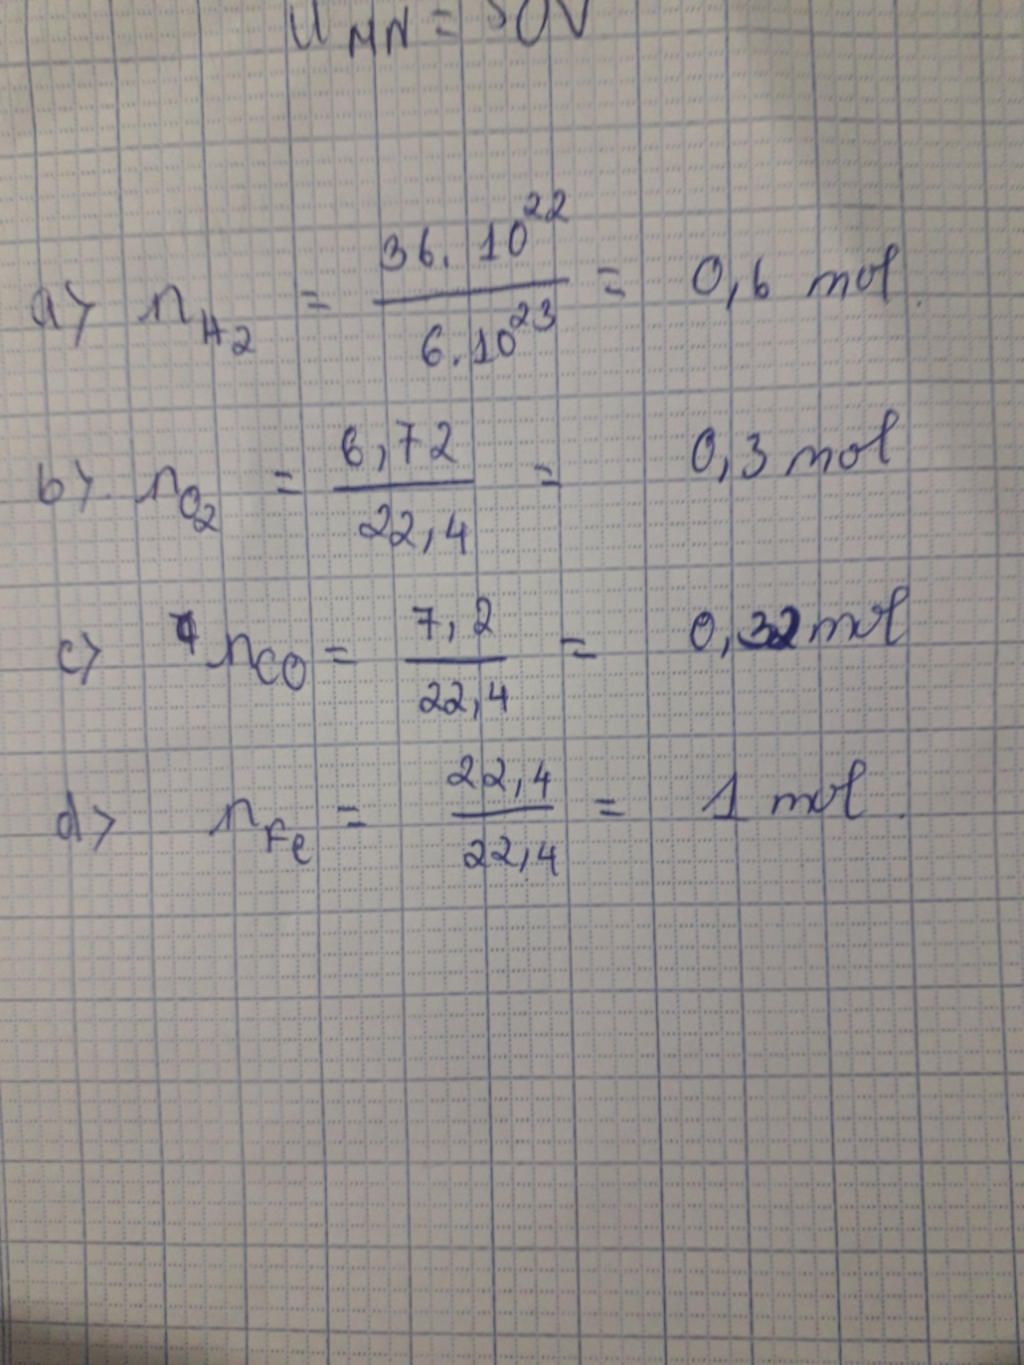 U MN = 30V
a) n H2 = 36. 10^22 / 6.10^23 = 0,6 mol.
b) n O2 = 6,72 / 22,4 = 0,3 mol
c) n CO = 7,2 / 22,4 = 0,32 mol
d) n Fe = 22,4 / 22,4 = 1 mol.